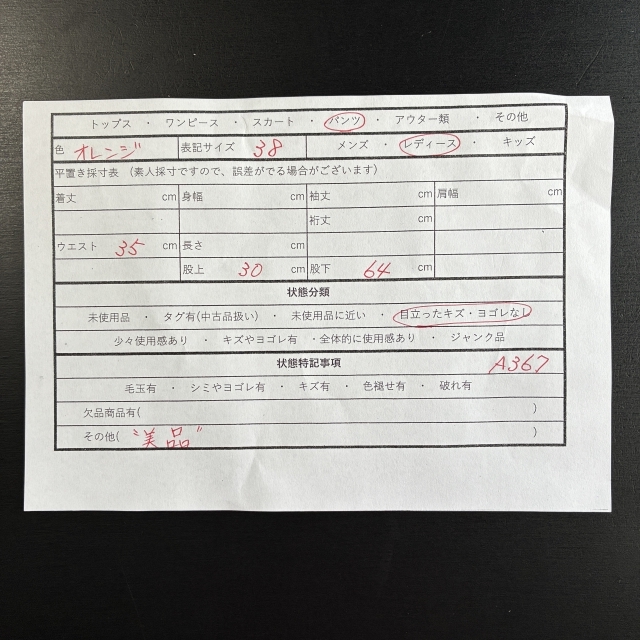 トップス ・ ワンピース ・ スカート ・ パンツ ・ アウター類 ・ その他
色 オレンジ 表記サイズ 38 メンズ ・ レディース ・ キッズ
平置き採寸表 (素人採寸ですので、誤差がでる場合がございます)
着丈 cm 身幅 cm 袖丈 cm 肩幅 cm
裄丈 cm
ウエスト 35 cm 長さ cm
股上 30 cm 股下 64 cm
状態分類
未使用品 ・ タグ有(中古品扱い) ・ 未使用品に近い ・ 目立ったキズ・ヨゴレなし
少々使用感あり ・ キズやヨゴレ有 ・全体的に使用感あり ・ ジャンク品
状態特記事項 A367
毛玉有 ・ シミやヨゴレ有 ・ キズ有 ・ 色褪せ有 ・ 破れ有
欠品商品有( )
その他( "美品" )